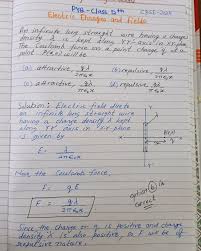 PYQ - Class 12th CBSE-2025
Electric Charges and Fields
An infinite long straight wire having a charge
density λ is kept along YY'-axis in XY-plane.
The Coulomb force on a point charge q at a
point P(x,0) will be
(a) attractive, qλ/2πε₀x (b) repulsive, qλ/2πε₀x
(c) attractive, (d) repulsive,
Solution: Electric field due to
an infinite long straight wire
having a charge density λ kept
along YY' axis in XY-plane
is given by
E = λ/2πε₀x
Now the Coulomb force,
F = qE
F = qλ/2πε₀x
option (b) is
correct
Since the charge q is positive and charge
density λ is also positive, so F will be of
repulsive nature.